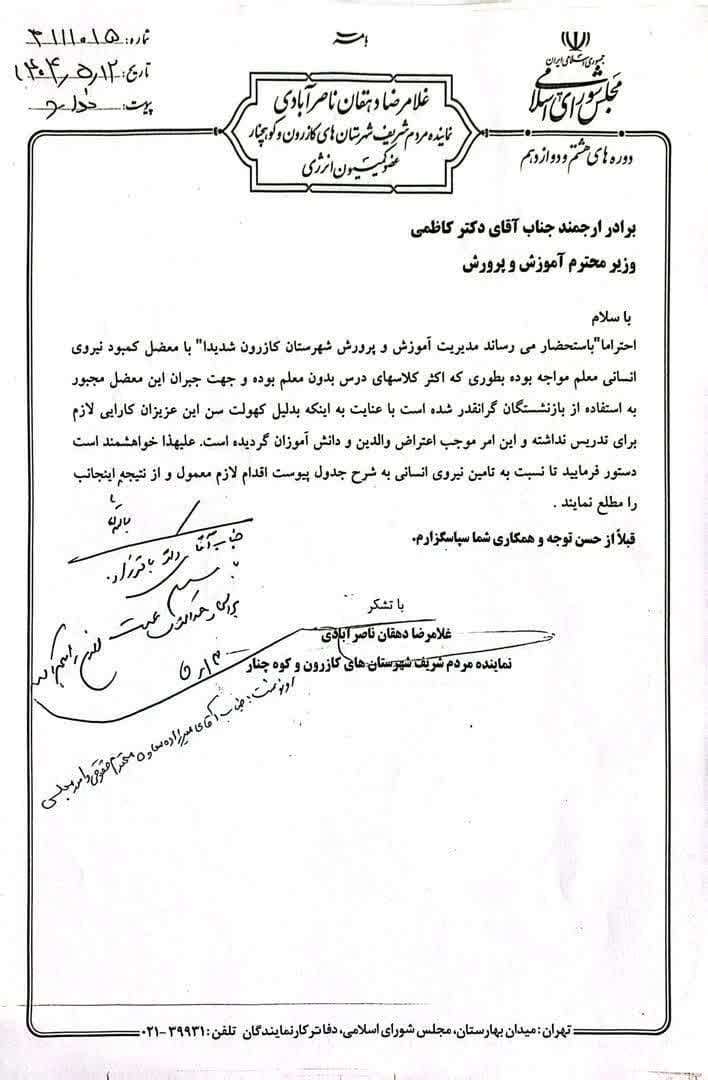 جمهوری اسلامی ایران
مجلس شورای اسلامی
دوره های هشتم و دوازدهم
غلامرضا دهقان ناصرآبادی
نماینده مردم شریف شهرستان های کازرون و کوهچنار
عضو کمیسیون انرژی
شماره: ۳۱۱۱۰۱۵
تاریخ: ۱۴۰۴/۵/۱۲
پیوست: دارد
برادر ارجمند جناب آقای دکتر کاظمی
وزیر محترم آموزش و پرورش
با سلام
احتراما"باستحضار می رساند مدیریت آموزش و پرورش شهرستان کازرون شدیدا" با معضل کمبود نیروی
انسانی معلم مواجه بوده بطوری که اکثر کلاسهای درس بدون معلم بوده و جهت جبران این معضل مجبور
به استفاده از بازنشستگان گرانقدر شده است با عنایت به اینکه بدلیل کهولت سن این عزیزان کارایی لازم
برای تدریس نداشته و این امر موجب اعتراض والدین و دانش آموزان گردیده است. علیهذا خواهشمند است
دستور فرمایید تا نسبت به تامین نیروی انسانی به شرح جدول پیوست اقدام لازم معمول و از نتیجه اینجانب
را مطلع نمایند .
قبلاً از حسن توجه و همکاری شما سپاسگزارم.
جناب آقای دکتر باقرزاده
با تشکر
غلامرضا دهقان ناصرآبادی
نماینده مردم شریف شهرستان های کازرون و کوه چنار
رونوشت: جناب آقای میرزاده معاون محترم حقوقی و امور مجلس
تهران: میدان بهارستان، مجلس شورای اسلامی، دفاتر کار نمایندگان تلفن: ۳۹۹۳۱-۰۲۱